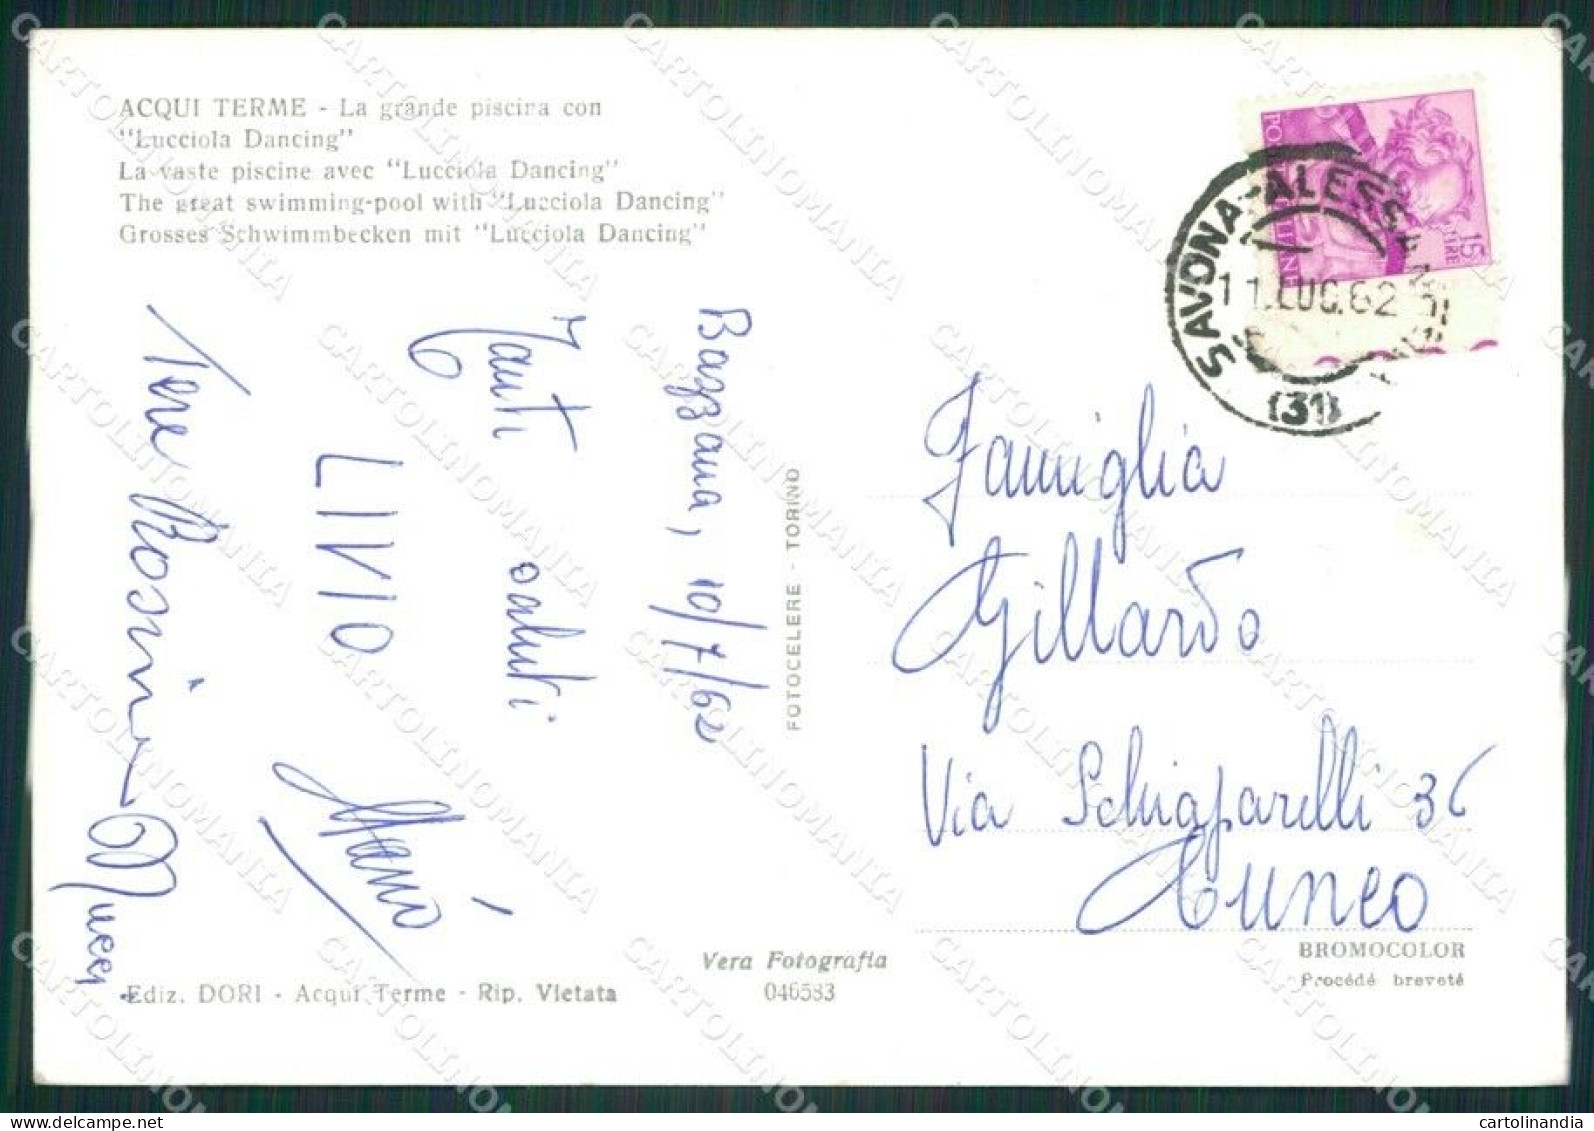 ACQUI TERME - La grande piscina con
"Lucciola Dancing"
La vaste piscine avec "Lucciola Dancing"
The great swimming-pool with "Lucciola Dancing"
Grosses Schwimmbecken mit "Lucciola Dancing"
15
LIRE
SAVONA-ALESS
11.LUG.62
(31)
Bazzana, 10/7/62
Tanti saluti
LIVIO
Mario
FOTOCELERE - TORINO
Famiglia
Gillardo
Via Schiaparelli 36
Cuneo
BROMOCOLOR
Procédé breveté
Vera Fotografia
046583
Ediz. DORI - Acqui Terme - Rip. Vietata
delcampe.net
cartolinandia
CARTOLINOMANIA